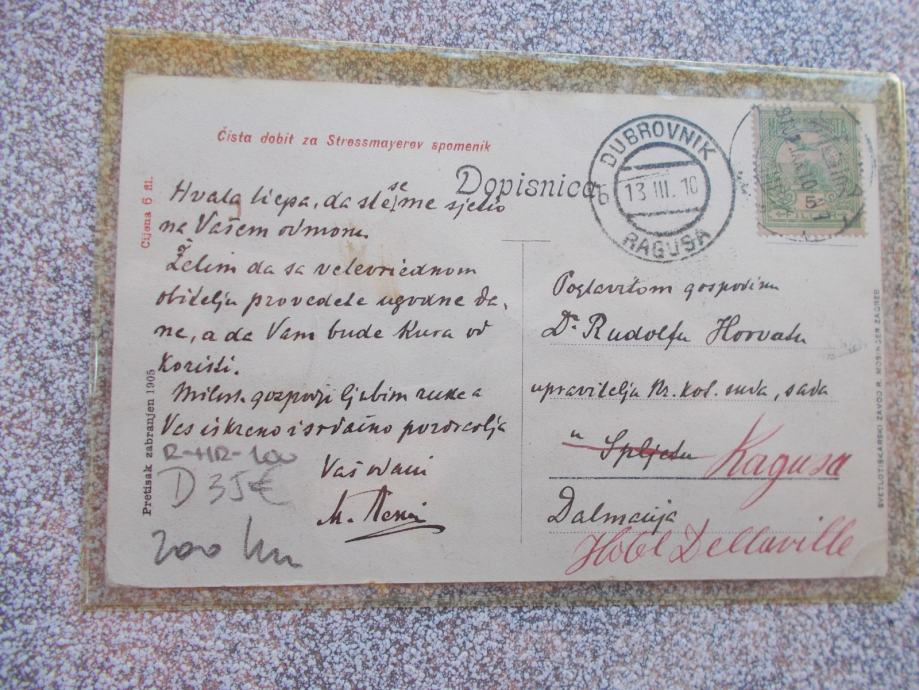 Čista dobit za Stressmayerov spomenik
Cijena 6 fil.
Pretisak zabranjen 1905
Dopisnica
DUBROVNIK
13 III. 10
RAGUSA
5
Hvala liepa, da ste se me sjetio
na Vašem odmoru.
Želim da sa velevriednom
obitelju provedete ugodne da,
ne, a da Vam bude Kura od
koristi.
Milost. gospodji ljubim ruke a
Vas iskreno i srdačno pozdravlja
Vaš odani
M.
R-HR-100
D 35€
200 kn
Poglavitom gospodinu
Dr. Rudolfu Horvatu
upravitelju kr. kot. suda, sada
u Spljetu Ragusa
Dalmacija
Hotel Dellaville
SVETLOTISKARSKI ZAVOD R. MOSINGER ZAGREB